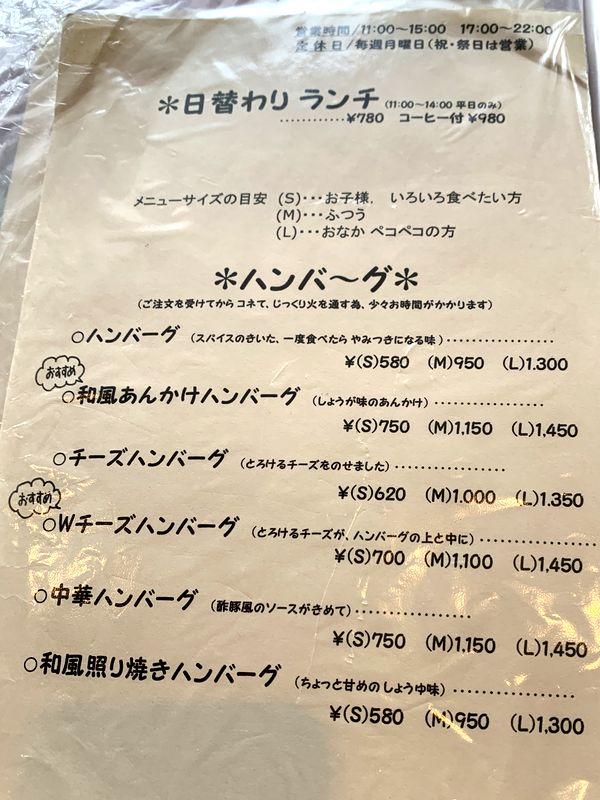 営業時間/11:00～15:00　17:00～22:00
定休日/毎週月曜日(祝・祭日は営業)
＊日替わり ランチ (11:00～14:00 平日のみ)
…………¥780　コーヒー付 ¥980
メニューサイズの目安　(S)・・・お子様,　いろいろ食べたい方
(M)・・・ふつう
(L)・・・おなか ペコペコの方
＊ハンバ～グ＊
(ご注文を受けてから コネて、じっくり火を通す為、少々お時間がかかります)
○ハンバーグ (スパイスのきいた、一度食べたら やみつきになる味)………………
¥(S)580　(M)950　(L)1.300
おすすめ
○和風あんかけハンバーグ (しょうが味のあんかけ)………………
¥(S)750　(M)1,150　(L)1,450
○チーズハンバーグ (とろけるチーズをのせました)………………
¥(S)620　(M)1.000　(L)1.350
おすすめ
○Wチーズハンバーグ (とろけるチーズが、ハンバーグの上と中に)………………
¥(S)700　(M)1,100　(L)1,450
○中華ハンバーグ (酢豚風のソースがきめて)………………
¥(S)750　(M)1,150　(L)1,450
○和風照り焼きハンバーグ (ちょっと甘めの しょうゆ味)………………
¥(S)580　(M)950　(L)1,300